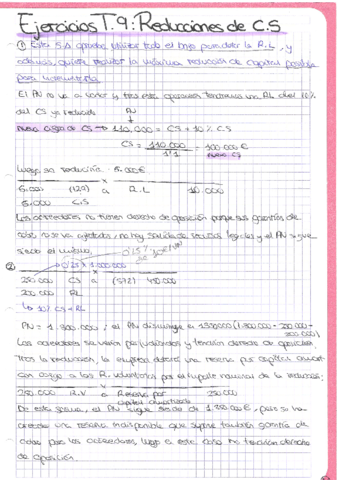 Ejercicios T.9: Reducciones de C.S
① Esta S.A. aprueba utilizar todo el Bº para dotar la R.L, y
además, quiere realizar la máxima reducción de capital posible
para
El PN no va a variar y tras esta operación tendremos una RL del 10%
del CS ya reducido PN
nuevo cargo de CS → 110.000 = CS + 10% C.S
CS = 110.000 / 1'1 = 100.000 €
nuevo CS
Luego se reduciría 5.000€
x
5.000 (129) a R.L 10.000
5.000 C.S
Los acreedores no tienen derecho de oposición porque sus garantías de
cobro no se ven afectadas, no hay salida de recursos y el PN sigue
siendo el mismo.
② 0'25 x 1.000.000
x
250.000 CS a (572) 450.000
200.000 RL
↳ 10% CS = RL
PN = 1.800.000; el PN disminuye a 1350000 (1.800.000 - 200.000 -
250.000)
Los acreedores se verían perjudicados y tendrían derecho de oposición.
Tras la reducción, la empresa dotará una reserva por capital amort.
con cargo a las R. voluntarias por el importe nominal de la reducción:
250.000 R.V a Reserva por 250.000
capital amortizado
De esta forma, el PN sigue siendo de 1.350.000€, pero se ha
creado una reserva indisponible que supone también garantía de
cobro para los acreedores, luego en este caso no tendrían derecho
de oposición.